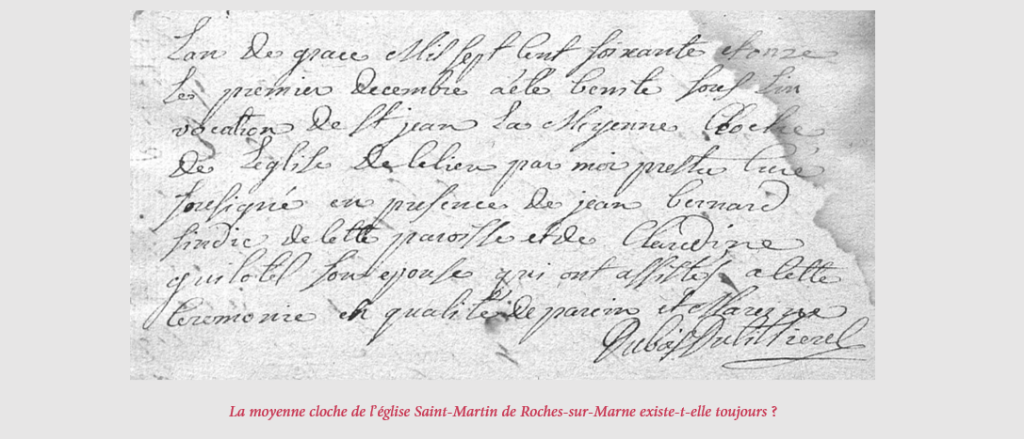 Lan de grace Mil sept cent soixante et onze
Le premier decembre a été benite sous lin
vocation de St jean La Moyenne Cloche
de Leglise de ce lieu par moi pretre curé
sousigné en presence de jean bernard
sindic de cette paroisse et de Claudine
son epouse qui ont assistés a cette
ceremonie en qualité de parein et Mareine
La moyenne cloche de l'église Saint-Martin de Roches-sur-Marne existe-t-elle toujours ?